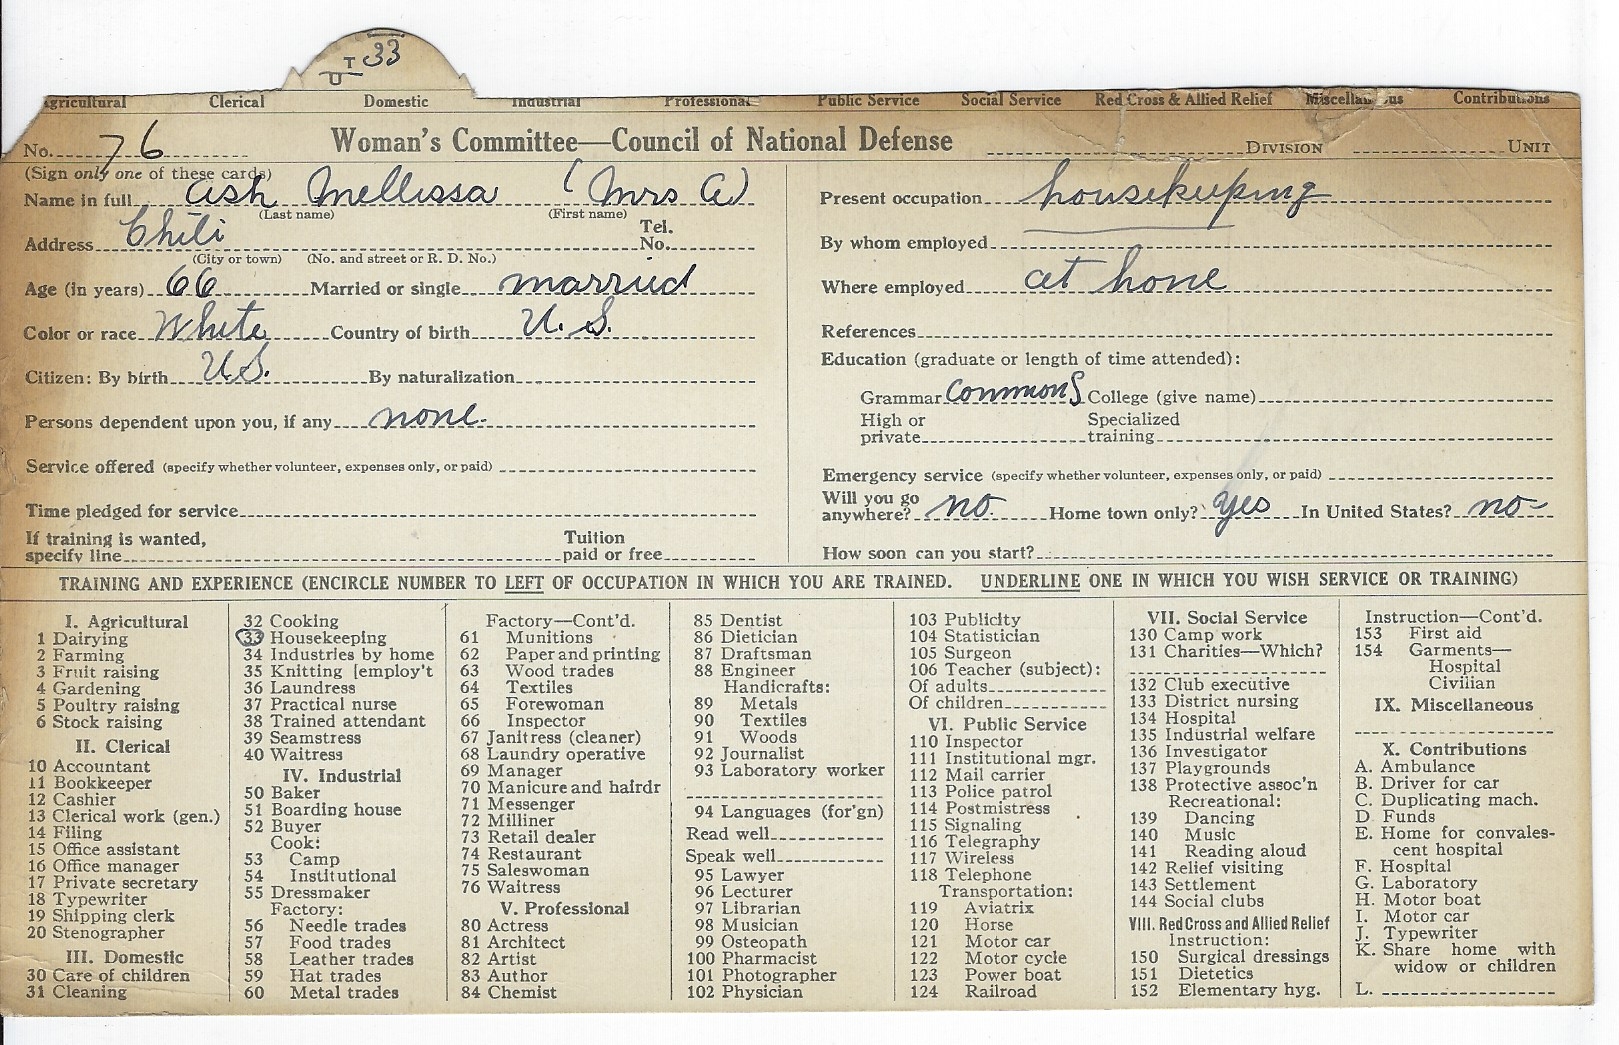 T 33
U
Agricultural Clerical Domestic Industrial Professional Public Service Social Service Red Cross & Allied Relief Miscellaneous Contributions
No. 76 Woman's Committee—Council of National Defense DIVISION UNIT
(Sign only one of these cards)
Name in full Ash Mellissa (Mrs A)
(Last name) (First name)
Address Chili Tel. No.
(City or town) (No. and street or R. D. No.)
Age (in years) 66 Married or single married
Color or race White Country of birth U. S.
Citizen: By birth U.S. By naturalization
Persons dependent upon you, if any none.
Service offered (specify whether volunteer, expenses only, or paid)
Time pledged for service
If training is wanted, specify line Tuition paid or free
Present occupation housekeeping
By whom employed
Where employed at home
References
Education (graduate or length of time attended):
Grammar Common S College (give name)
High or private Specialized training
Emergency service (specify whether volunteer, expenses only, or paid)
Will you go anywhere? no. Home town only? yes In United States? no
How soon can you start?
TRAINING AND EXPERIENCE (ENCIRCLE NUMBER TO LEFT OF OCCUPATION IN WHICH YOU ARE TRAINED. UNDERLINE ONE IN WHICH YOU WISH SERVICE OR TRAINING)
I. Agricultural
1 Dairying
2 Farming
3 Fruit raising
4 Gardening
5 Poultry raising
6 Stock raising
II. Clerical
10 Accountant
11 Bookkeeper
12 Cashier
13 Clerical work (gen.)
14 Filing
15 Office assistant
16 Office manager
17 Private secretary
18 Typewriter
19 Shipping clerk
20 Stenographer
III. Domestic
30 Care of children
31 Cleaning
32 Cooking
33 Housekeeping
34 Industries by home
35 Knitting [employ't
36 Laundress
37 Practical nurse
38 Trained attendant
39 Seamstress
40 Waitress
IV. Industrial
50 Baker
51 Boarding house
52 Buyer
Cook:
53 Camp
54 Institutional
55 Dressmaker
Factory:
56 Needle trades
57 Food trades
58 Leather trades
59 Hat trades
60 Metal trades
Factory—Cont'd.
61 Munitions
62 Paper and printing
63 Wood trades
64 Textiles
65 Forewoman
66 Inspector
67 Janitress (cleaner)
68 Laundry operative
69 Manager
70 Manicure and hairdr
71 Messenger
72 Milliner
73 Retail dealer
74 Restaurant
75 Saleswoman
76 Waitress
V. Professional
80 Actress
81 Architect
82 Artist
83 Author
84 Chemist
85 Dentist
86 Dietician
87 Draftsman
88 Engineer
Handicrafts:
89 Metals
90 Textiles
91 Woods
92 Journalist
93 Laboratory worker
94 Languages (for'gn)
Read well
Speak well
95 Lawyer
96 Lecturer
97 Librarian
98 Musician
99 Osteopath
100 Pharmacist
101 Photographer
102 Physician
103 Publicity
104 Statistician
105 Surgeon
106 Teacher (subject):
Of adults
Of children
VI. Public Service
110 Inspector
111 Institutional mgr.
112 Mail carrier
113 Police patrol
114 Postmistress
115 Signaling
116 Telegraphy
117 Wireless
118 Telephone
Transportation:
119 Aviatrix
120 Horse
121 Motor car
122 Motor cycle
123 Power boat
124 Railroad
VII. Social Service
130 Camp work
131 Charities—Which?
132 Club executive
133 District nursing
134 Hospital
135 Industrial welfare
136 Investigator
137 Playgrounds
138 Protective assoc'n
Recreational:
139 Dancing
140 Music
141 Reading aloud
142 Relief visiting
143 Settlement
144 Social clubs
VIII. Red Cross and Allied Relief
Instruction:
150 Surgical dressings
151 Dietetics
152 Elementary hyg.
Instruction—Cont'd.
153 First aid
154 Garments—
Hospital
Civilian
IX. Miscellaneous
X. Contributions
A. Ambulance
B. Driver for car
C. Duplicating mach.
D. Funds
E. Home for convales-
cent hospital
F. Hospital
G. Laboratory
H. Motor boat
I. Motor car
J. Typewriter
K. Share home with
widow or children
L.